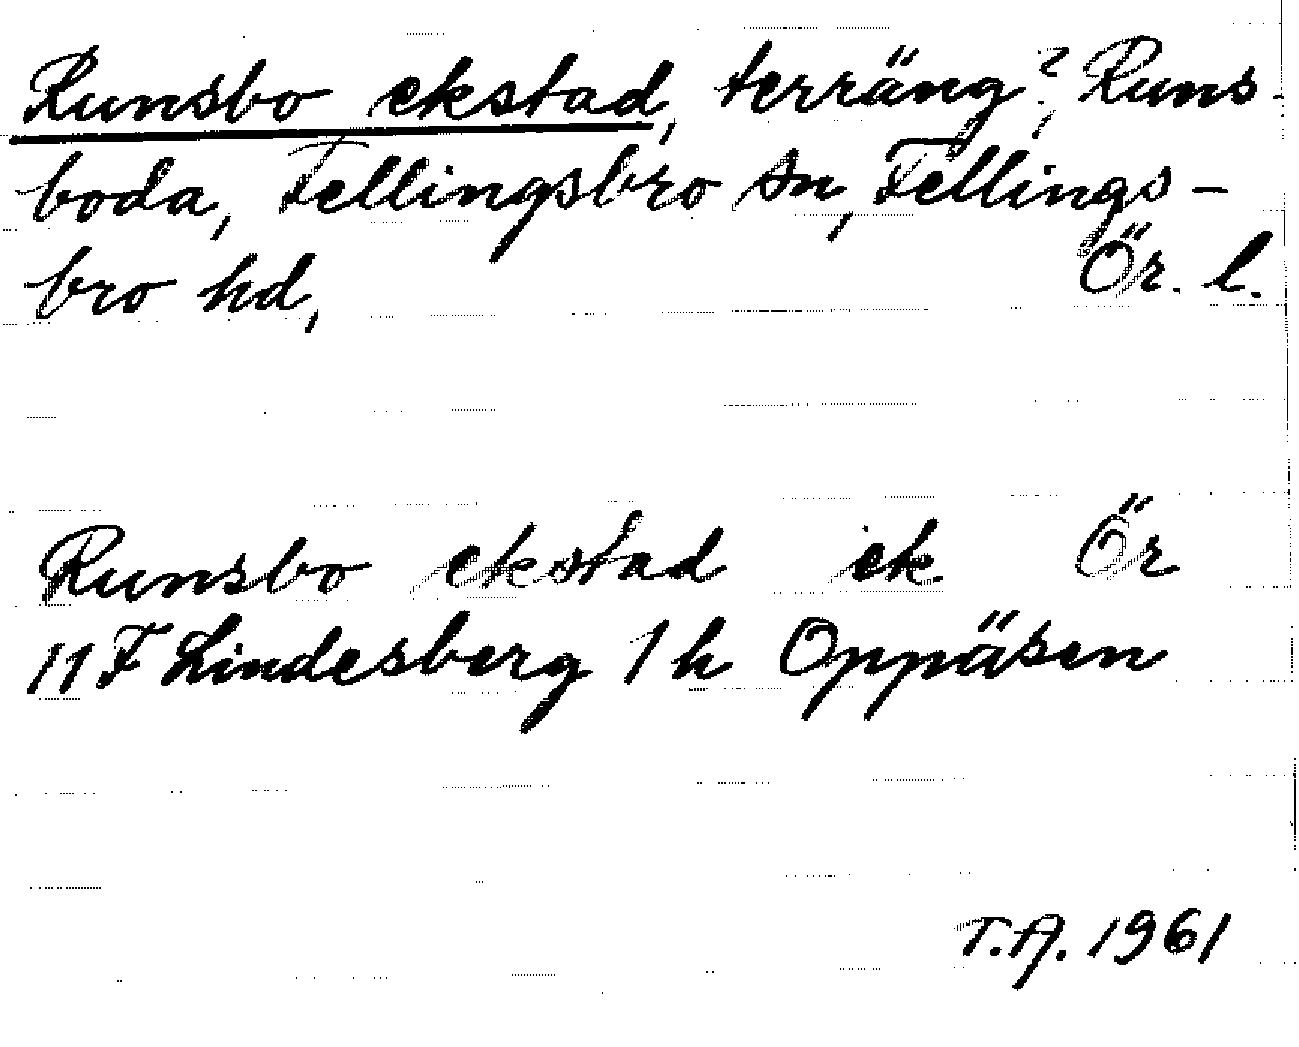 Runsbo ekstad, terräng?, Runs-
boda, Fellingsbro sn, Fellings-
bro hd, Ör. l.
Runsbo ekstad ek Ör
11F Lindesberg 1h Oppäsen
T.A. 1961